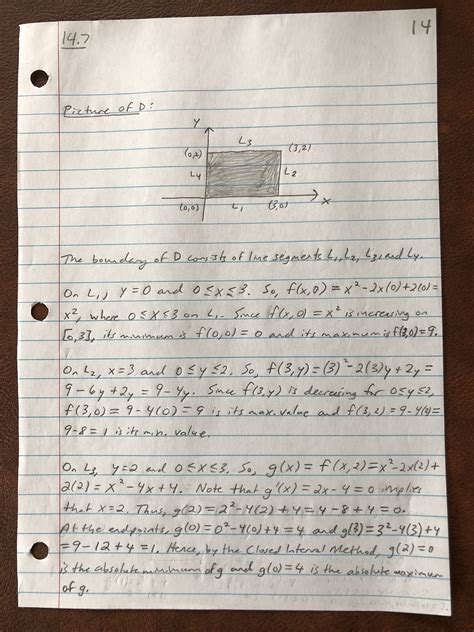 14.7
14
Picture of D:
y
L3
(0,2)
(3,2)
L4
L2
(0,0)
L1
(3,0)
x
The boundary of D consists of line segments L1, L2, L3, and L4.
On L1, y=0 and 0≤x≤3. So, f(x,0) = x²-2x(0)+2(0)=
x², where 0≤x≤3 on L1. Since f(x,0) = x² is increasing on
[0,3], its minimum is f(0,0) = 0 and its maximum is f(3,0)=9.
On L2, x=3 and 0≤y≤2. So, f(3,y)=(3)²-2(3)y+2y=
9-6y+2y = 9-4y. Since f(3,y) is decreasing for 0≤y≤2,
f(3,0) = 9-4(0) = 9 is its max. value and f(3,2) = 9-4(2)=
9-8 = 1 is its min. value.
On L3, y=2 and 0≤x≤3. So, g(x) = f(x,2)=x²-2x(2)+
2(2) = x²-4x+4. Note that g'(x) = 2x-4=0 implies
that x=2. Thus, g(2)=2²-4(2)+4=4-8+4=0.
At the endpoints, g(0)=0²-4(0)+4=4 and g(3)=3²-4(3)+4
=9-12+4=1. Hence, by the Closed Interval Method, g(2)=0
is the absolute minimum of g and g(0)=4 is the absolute maximum
of g.